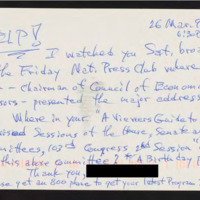 HELP!
26 Mar. 9
I watched you Sat. broa
the Friday Nat. Press Club where
-- chairman of Council of Econom
ors - presented the major address
Where in your "A Viewers Guide to
Sessions of the House, Senate a
mittees, 103rd Congress 2nd Session"
this above Committee? A Birthday
Thank you,
se yet an 800 phone to get your latest Program